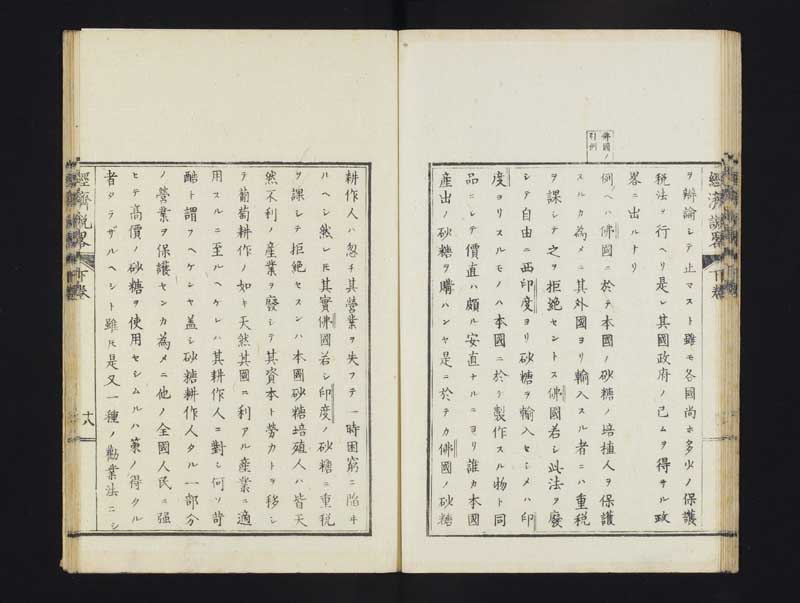 ヲ辯論シテ止マスト雖モ各國尚ホ多少ノ保護
税法ヲ行ヘリ是レ其國政府ノ已ムヲ得サル政
畧ニ出ルナリ
佛國ノ
引例
例ヘハ佛國ニ於テ本國ノ砂糖ノ培植人ヲ保護
スルカ為メニ其外國ヨリ輸入スル者ニハ重税
ヲ課シテ之ヲ拒絶セントス佛國若シ此法ヲ廢
シテ自由ニ西印度ヨリ砂糖ヲ輸入セシメハ印
度ヨリスルモノハ本國ニ於テ製作スル物ト同
品ニシテ價直ハ頗ル安直ナルニヨリ誰カ本國
産出ノ砂糖ヲ購ハンヤ是ニ於テカ佛國ノ砂糖
經濟説畧 下巻
耕作人ハ忽チ其營業ヲ失フテ一時困窮ニ陷ヰ
ルヘシ然レ𪜈其實佛國若シ印度ノ砂糖ニ重税
ヲ課シテ拒絶セスンハ本國砂糖培殖人ハ皆天
然不利ノ産業ヲ發シテ其資本ト勞力トヲ移シ
テ葡萄耕作ノ如キ天然其國ニ利アル産業ニ適
用スルニ至ルヘケレハ其耕作人ニ對シ何ソ苛
酷ト謂フヘケンヤ盖シ砂糖耕作人タル一部分
ノ營業ヲ保護センカ為メニ他ノ全國人民ニ强
ヒテ高價ノ砂糖ヲ使用セシムルハ策ノ得タル
者タラザルヘシト雖𪜈是又一種ノ勸業法ニシ
經濟説畧 下巻 十八